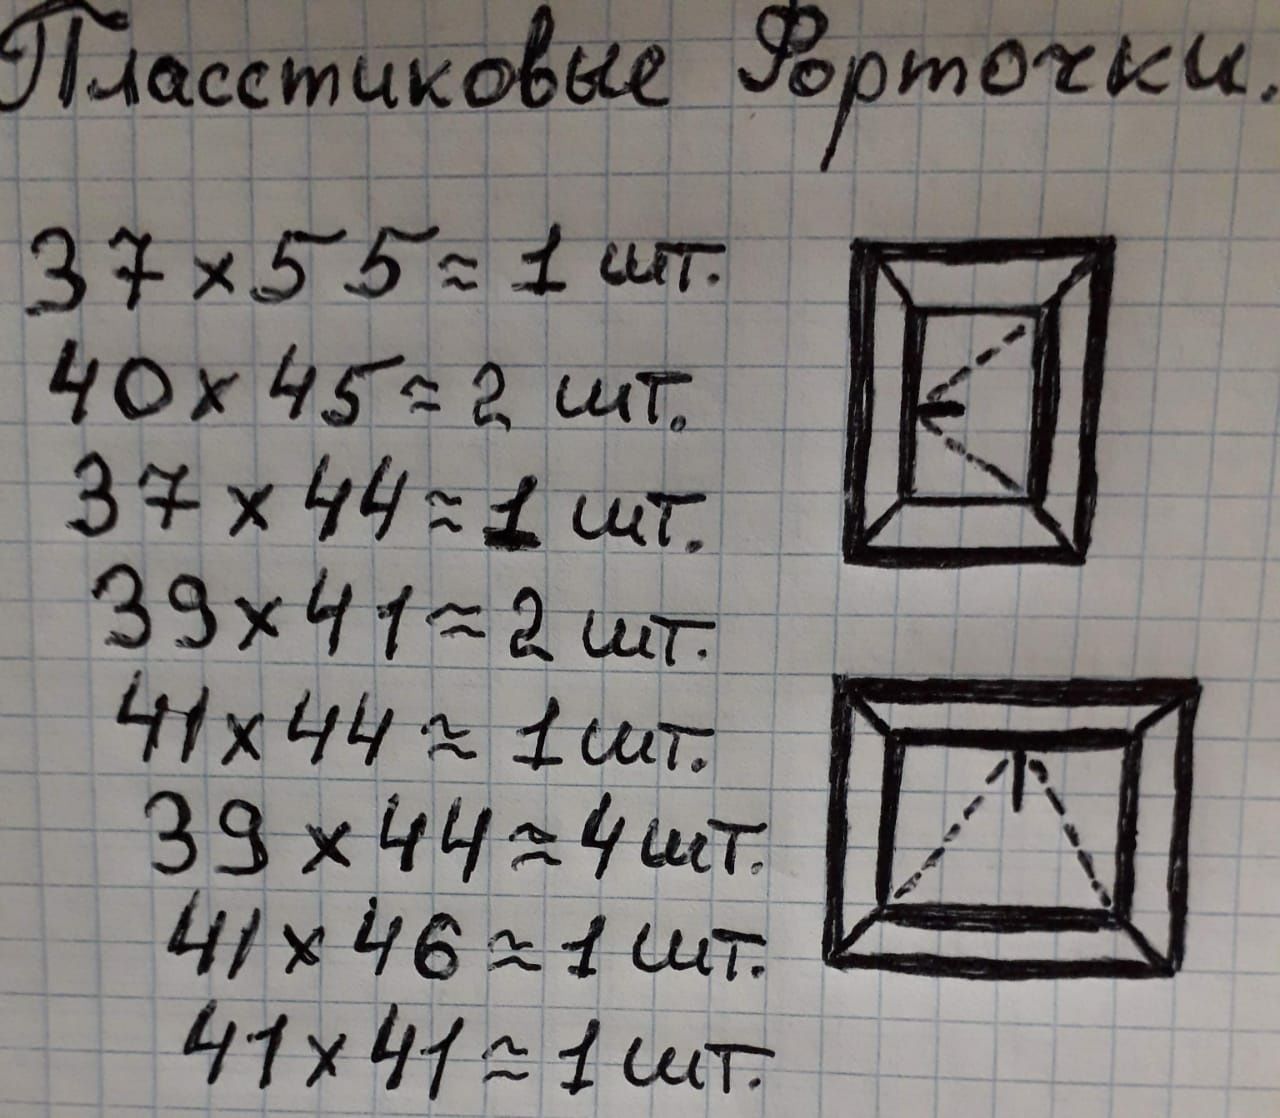 Пласстиковые Форточки.
37 x 55 ≈ 1 шт.
40 x 45 ≈ 2 шт.
37 x 44 ≈ 1 шт.
39 x 41 ≈ 2 шт.
41 x 44 ≈ 1 шт.
39 x 44 ≈ 4 шт.
41 x 46 ≈ 1 шт.
41 x 41 ≈ 1 шт.